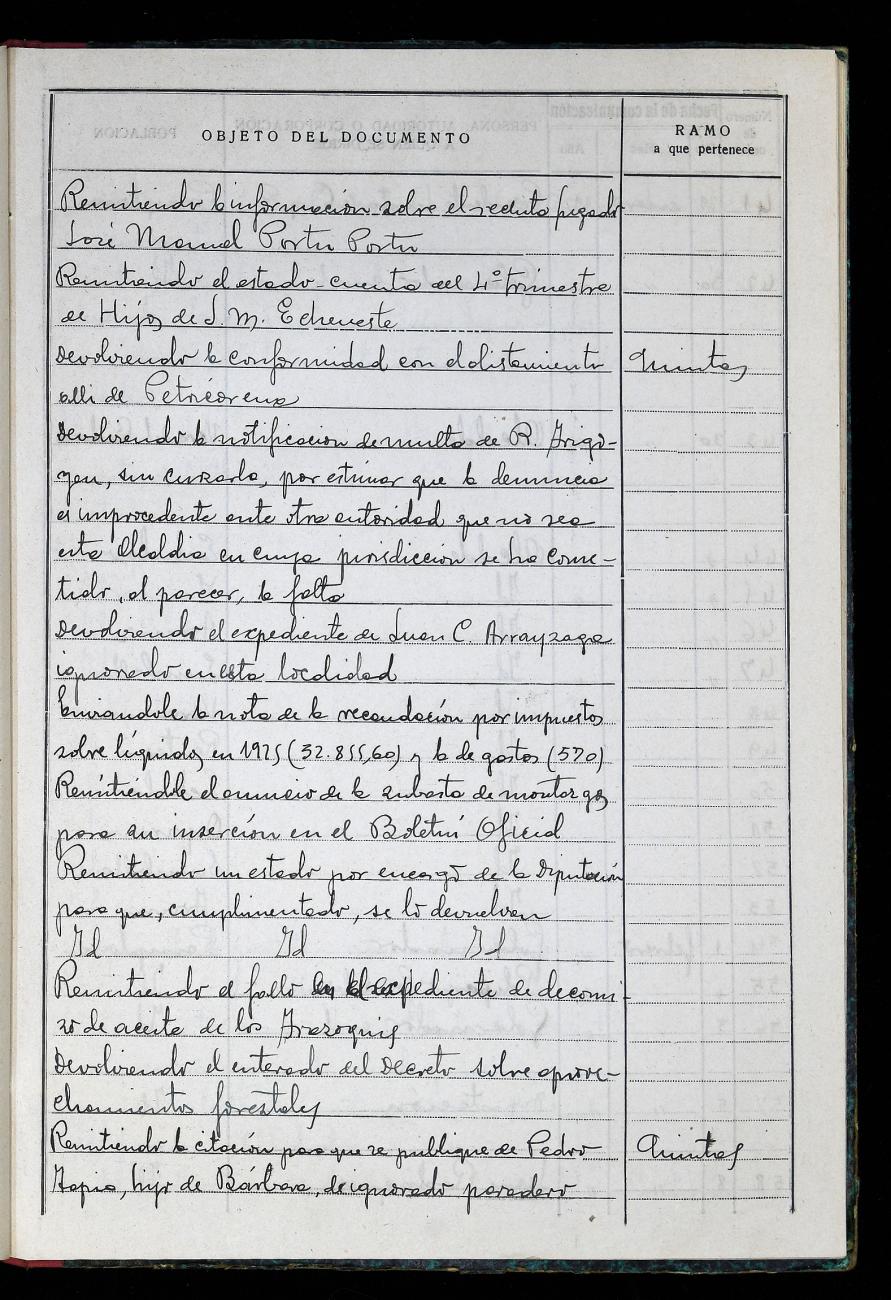 OBJETO DEL DOCUMENTO
RAMO
a que pertenece
Remitiendo la información sobre el recluta fugado
José Manuel Portu Portu
Remitiendo el estado-cuenta del 4º trimestre
de Hijos de J. M. Echeveste
Devolviendo la conformidad con el alistamiento Quintas
alli de Petricorena
Devolviendo la notificacion de multa de R. Irigo-
yen, sin cursarla, por estimar que la denuncia
es improcedente ante otra autoridad que no sea
esta Alcaldia en cuya jurisdiccion se ha come-
tido, al parecer, la falta
Devolviendo el expediente de Juan C. Arrayzaga
ignorado en esta localidad
Enviandole la nota de la recaudación por impuestos
sobre líquidos en 1925 (32.855,60) y la de gastos (570)
Remitiéndole el anuncio de la subasta de montazgos
para su inserción en el Boletín Oficial
Remitiendo un estado por encargo de la Diputación
para que, cumplimentado, se lo devuelvan
Id Id Id
Remitiendo el fallo en el expediente de decomi-
so de aceite de los Irazoquis
Devolviendo el enterado del Decreto sobre aprove-
chamientos forestales
Remitiendo la citación para que se publique de Pedro Quintas
Tapia, hijo de Bárbara, de ignorado paradero